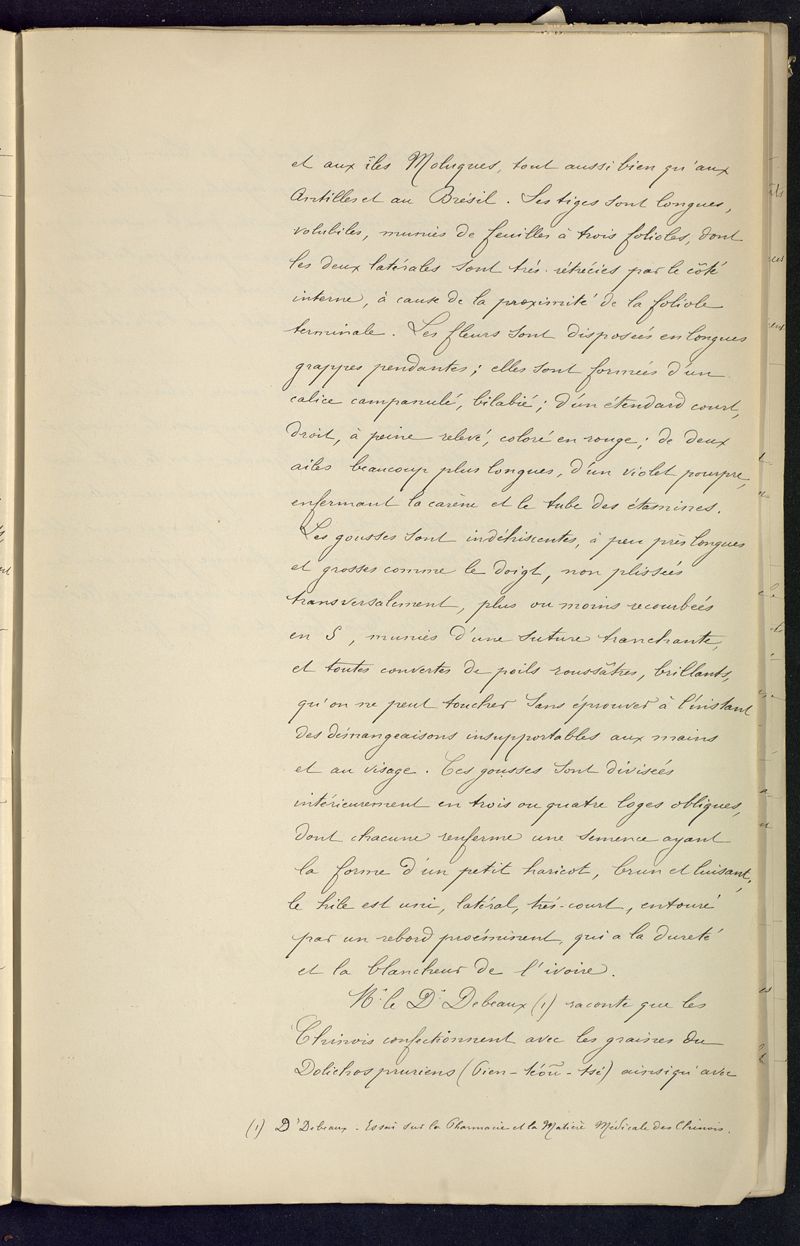 et aux îles Moluques, tout aussi bien qu'aux
Antilles et au Brésil. Ses tiges sont longues,
volubiles, munies de feuilles à trois folioles, dont
les deux latérales sont très-rétrécies par le côté
interne, à cause de la proximité de la foliole
terminale. Les fleurs sont disposées en longues
grappes pendantes; elles sont formées d'un
calice campanulé, bilabié; d'un étendard court,
droit, à peine relevé, coloré en rouge; de deux
ailes beaucoup plus longues, d'un violet pourpre,
enfermant la carène et le tube des étamines.
Les gousses sont indéhiscentes, à peu près longues
et grosses comme le doigt, non plissées
transversalement, plus ou moins recourbées
en S, munies d'une suture tranchante,
et toutes couvertes de poils roussâtres, brillants,
qu'on ne peut toucher sans éprouver à l'instant
des démangeaisons insupportables aux mains
et au visage. Ces gousses sont divisées
intérieurement en trois ou quatre loges obliques,
dont chacune renferme une semence ayant
la forme d'un petit haricot, brun et luisant;
le hile est uni, latéral, très-court, entouré
par un rebord proéminent, qui a la dureté
et la blancheur de l'ivoire.
Mr le Dr Debeaux (1) raconte que les
Chinois confectionnent avec les graines du
Dolichos pruriens (bien-téoū-tsé) ainsi qu'avec
(1) Dr Debeaux - Essai sur la Pharmacie et la Matière Médicale des Chinois.